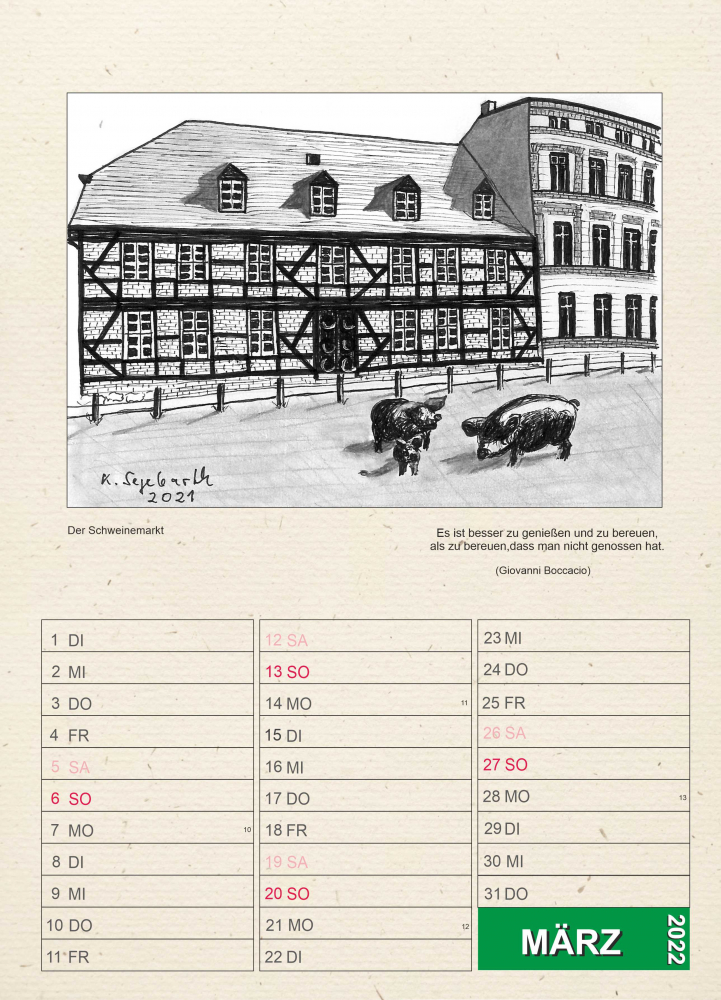 K. Segebarth
2021
Der Schweinemarkt
Es ist besser zu genießen und zu bereuen,
als zu bereuen,dass man nicht genossen hat.
(Giovanni Boccacio)
1 DI
2 MI
3 DO
4 FR
5 SA
6 SO
7 MO 10
8 DI
9 MI
10 DO
11 FR
12 SA
13 SO
14 MO 11
15 DI
16 MI
17 DO
18 FR
19 SA
20 SO
21 MO 12
22 DI
23 MI
24 DO
25 FR
26 SA
27 SO
28 MO 13
29 DI
30 MI
31 DO
MÄRZ 2022